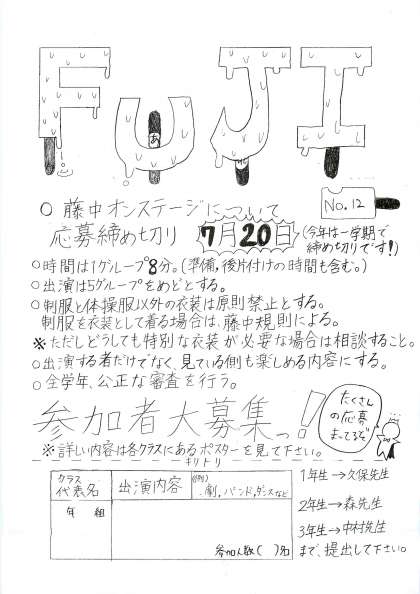 FUJI
あ
No.12
○ 藤中オンステージについて
応募締め切り 7月20日 (今年は一学期で締め切りです!)
○時間は1グループ8分。(準備,後片付けの時間も含む。)
○出演は5グループをめどとする。
○制服と体操服以外の衣装は原則禁止とする。
制服を衣装として着る場合は、藤中規則による。
※ただしどうしても特別な衣装が必要な場合は相談すること。
○出演する者だけでなく、見ている側も楽しめる内容にする。
○全学年、公正な審査を行う。
参加者大募集っ!
たくさんの応募まってるぞ
※詳しい内容は各クラスにあるポスターを見て下さい。
キリトリ
クラス代表名 出演内容 (例)劇,バンド,ダンスなど
年 組
参加人数( )名
1年生→久保先生
2年生→森先生
3年生→中村先生
まで、提出して下さい。